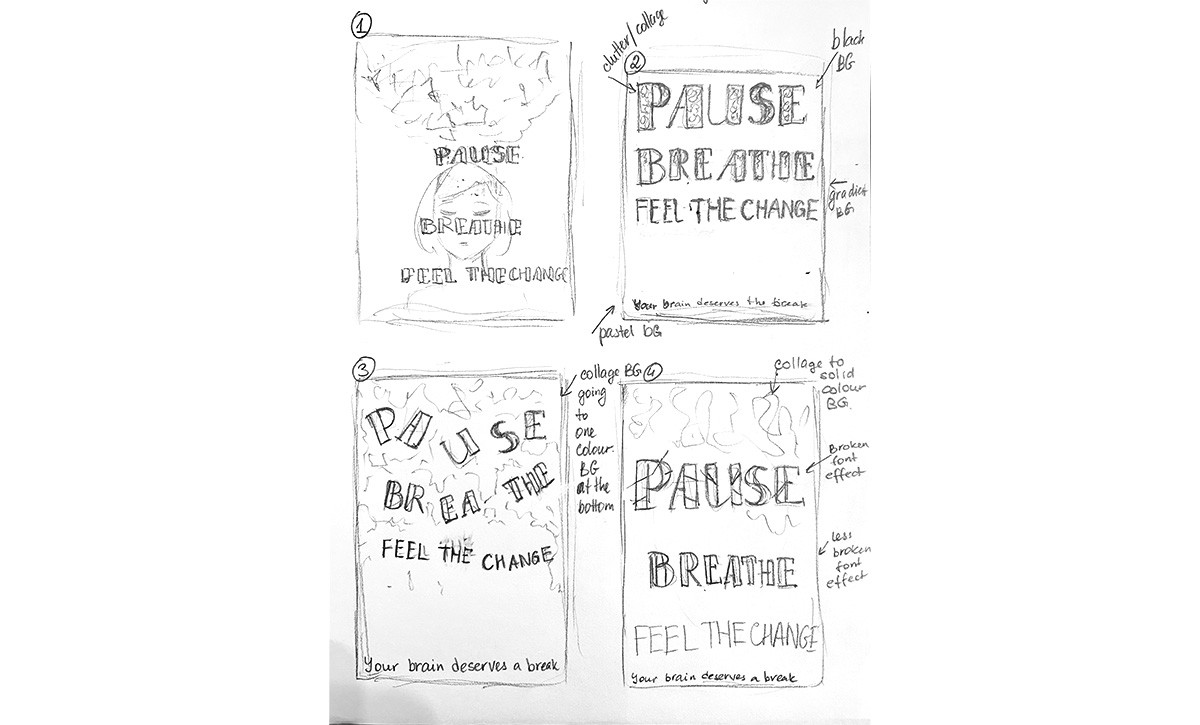 1
PAUSE
BREATHE
FEEL THE CHANGE
clutter/collage
2
black
BG
PAUSE
BREATHE
FEEL THE CHANGE
gradiet
BG
Your brain deserves the break
pastel BG
3
collage BG
going
to
one
colour
BG
at the
bottom
PAUSE
BREA-THE
FEEL THE CHANGE
Your brain deserves a break
4
collage to
solid
colour
BG.
Broken
font
effect
PAUSE
less
broken
font
effect
BREATHE
FEEL THE CHANGE
Your brain deserves a break